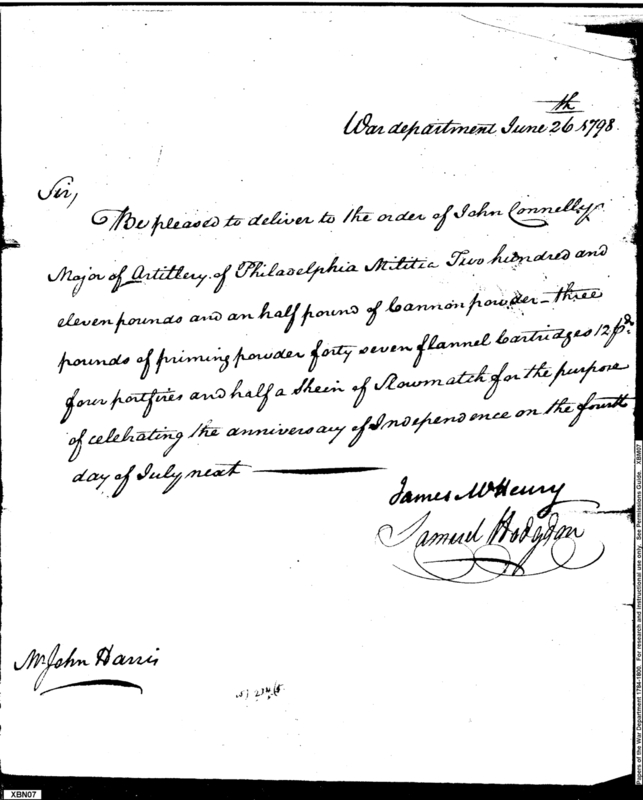 War department June 26th 1798
Sir,
Be pleased to deliver to the order of John Connelly
Major of Artillery of Philadelphia Militia Two hundred and
eleven pounds and an half pound of Cannon powder - three
pounds of priming powder forty seven flannel Cartridges 12 pdr.
four portfires and half a Skein of Slowmatch for the purpose
of celebrating the anniversary of Independence on the fourth
day of July next
James McHenry
Samuel Hodgdon
Mr John Harris
XBN07
Papers of the War Department 1784-1800. For research and instructional use only. See Permissions Guide. XBN07